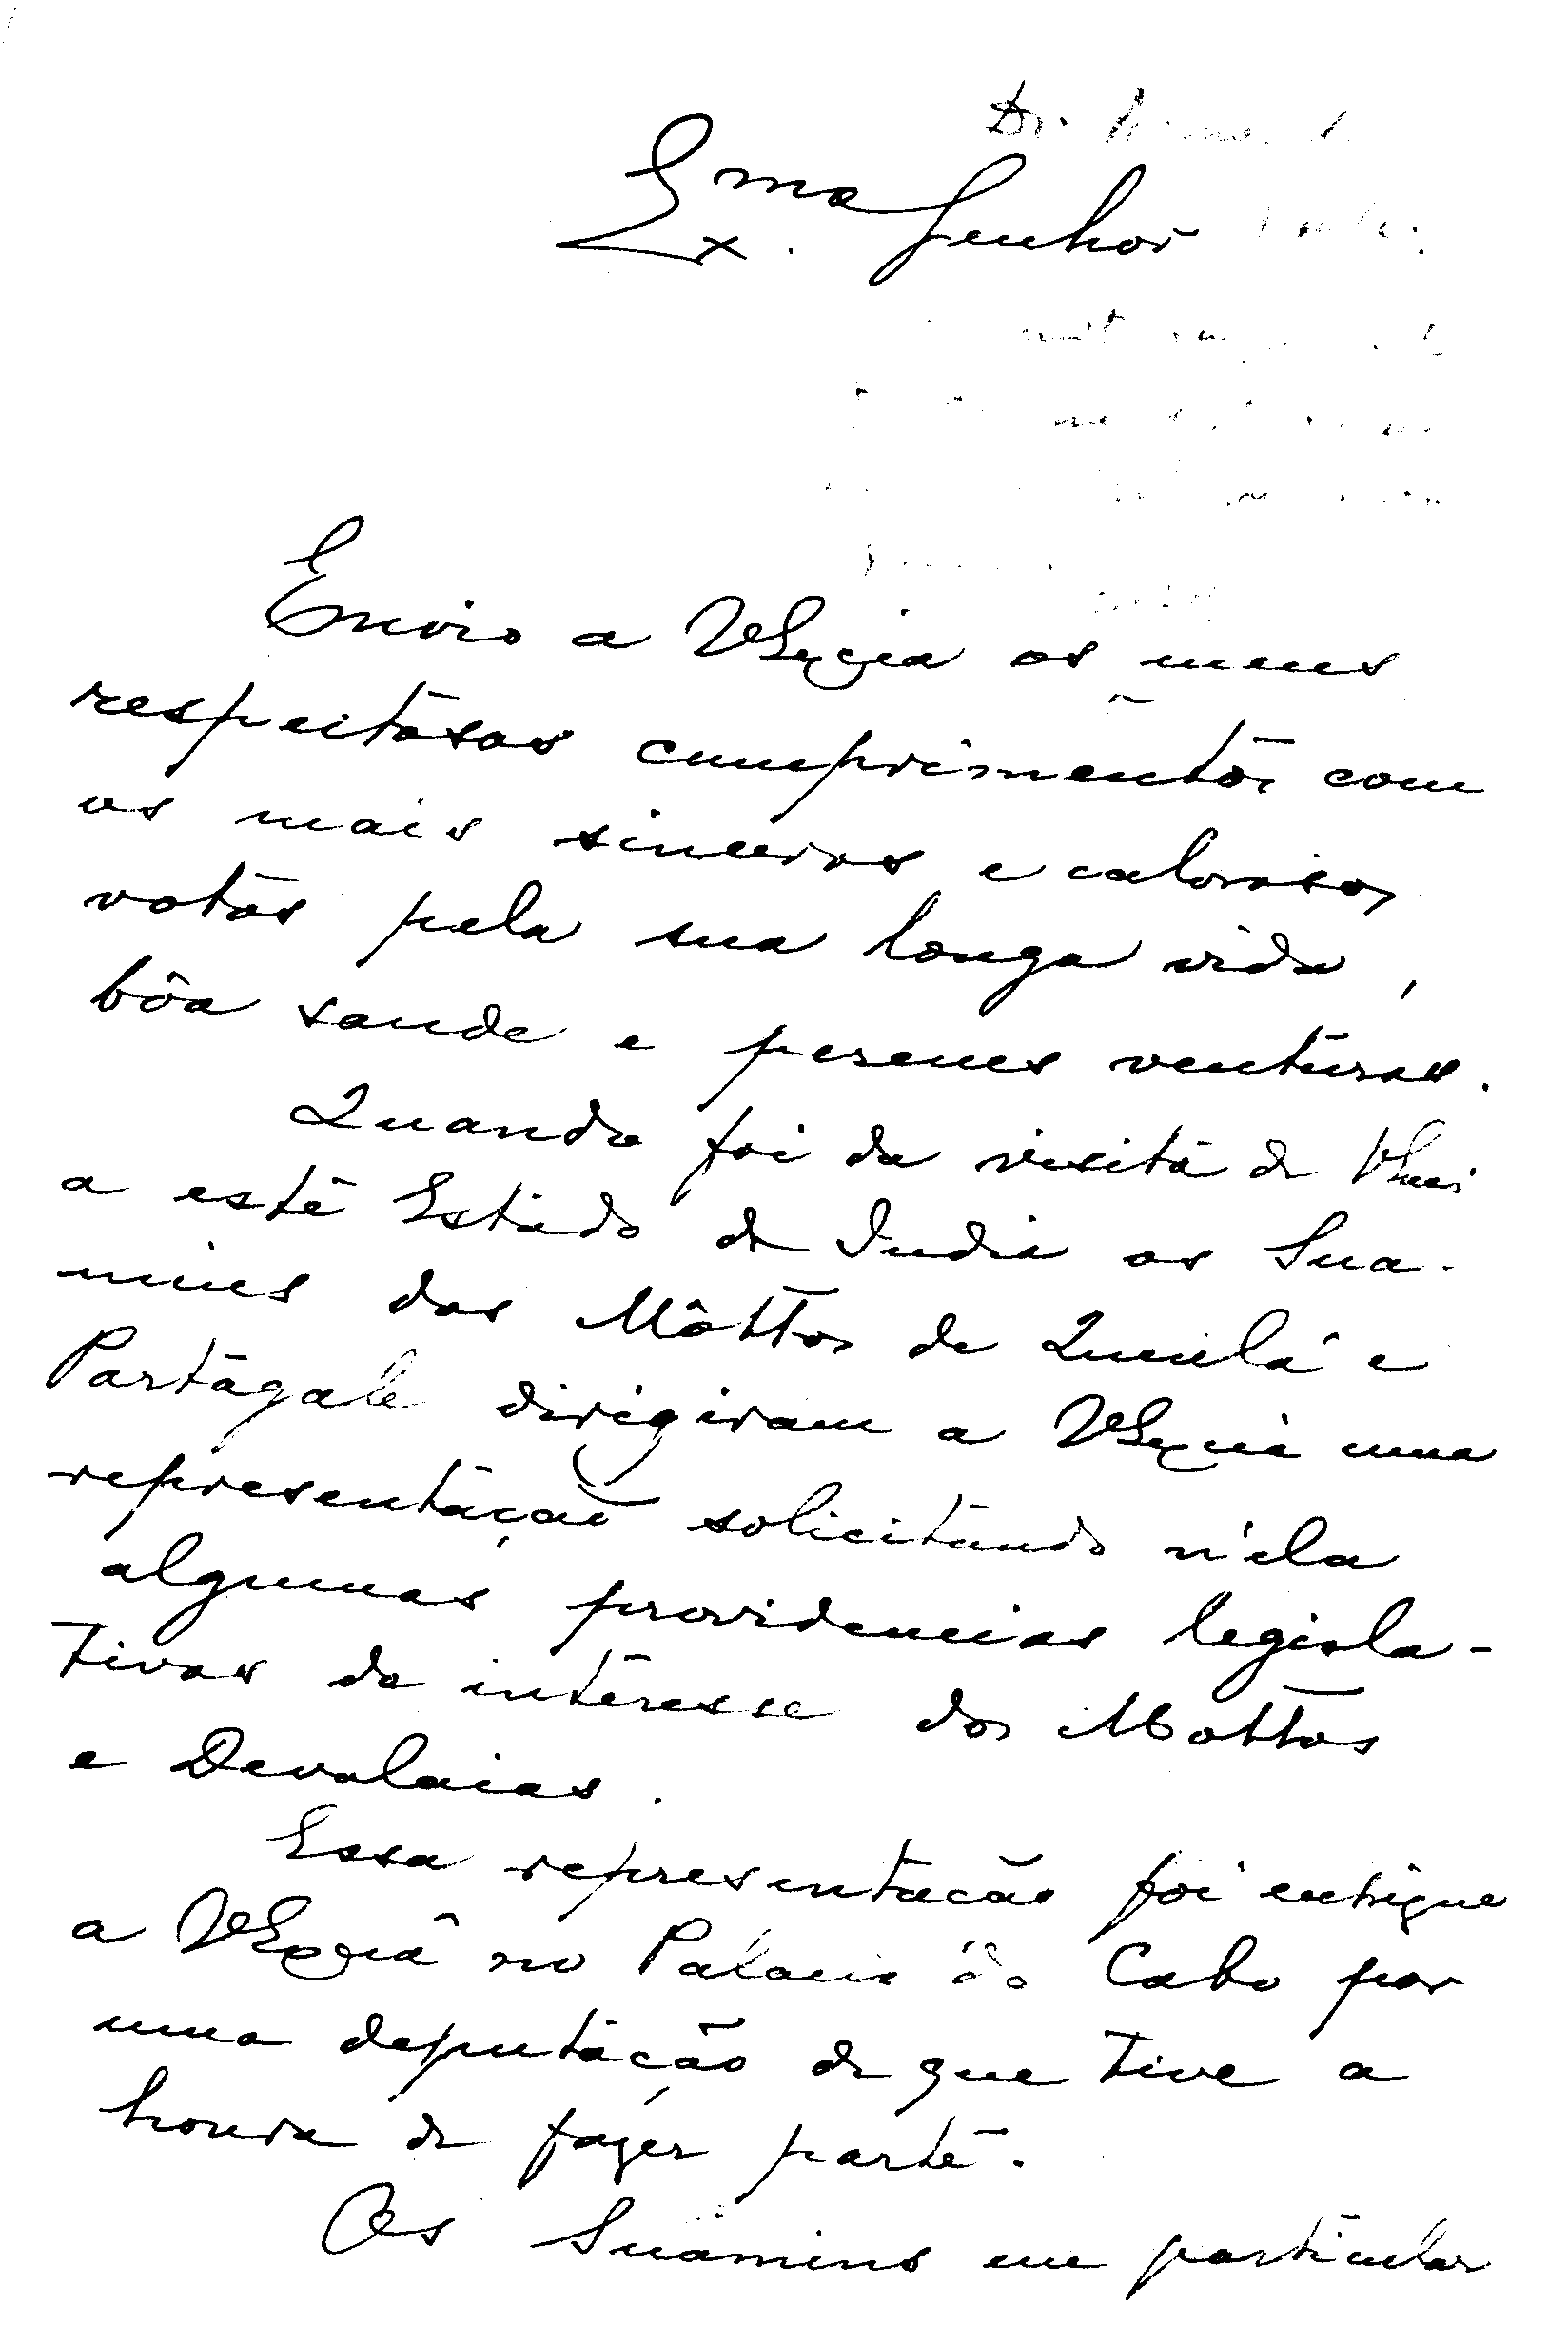 Dr.
Ex.mo Senhor
Envio a VExcia os meus
respeitosos cumprimentos com
os mais sinceros e calorosos
votos pela sua longa vida,
bôa saude e perenes venturas.
Quando foi da visita de VExcia
a este Estado da India os Sua-
mines dos Môttos de Queulá e
Partagale dirigiram a VExcia uma
representação solicitando n'ela
algumas providencias legisla-
tivas do interesse dos Mottos
e Devalaias.
Essa representação foi entregue
a VExcia no Palacio do Cabo por
uma deputação de que tive a
honra de fazer parte.
Os Suamins em particular